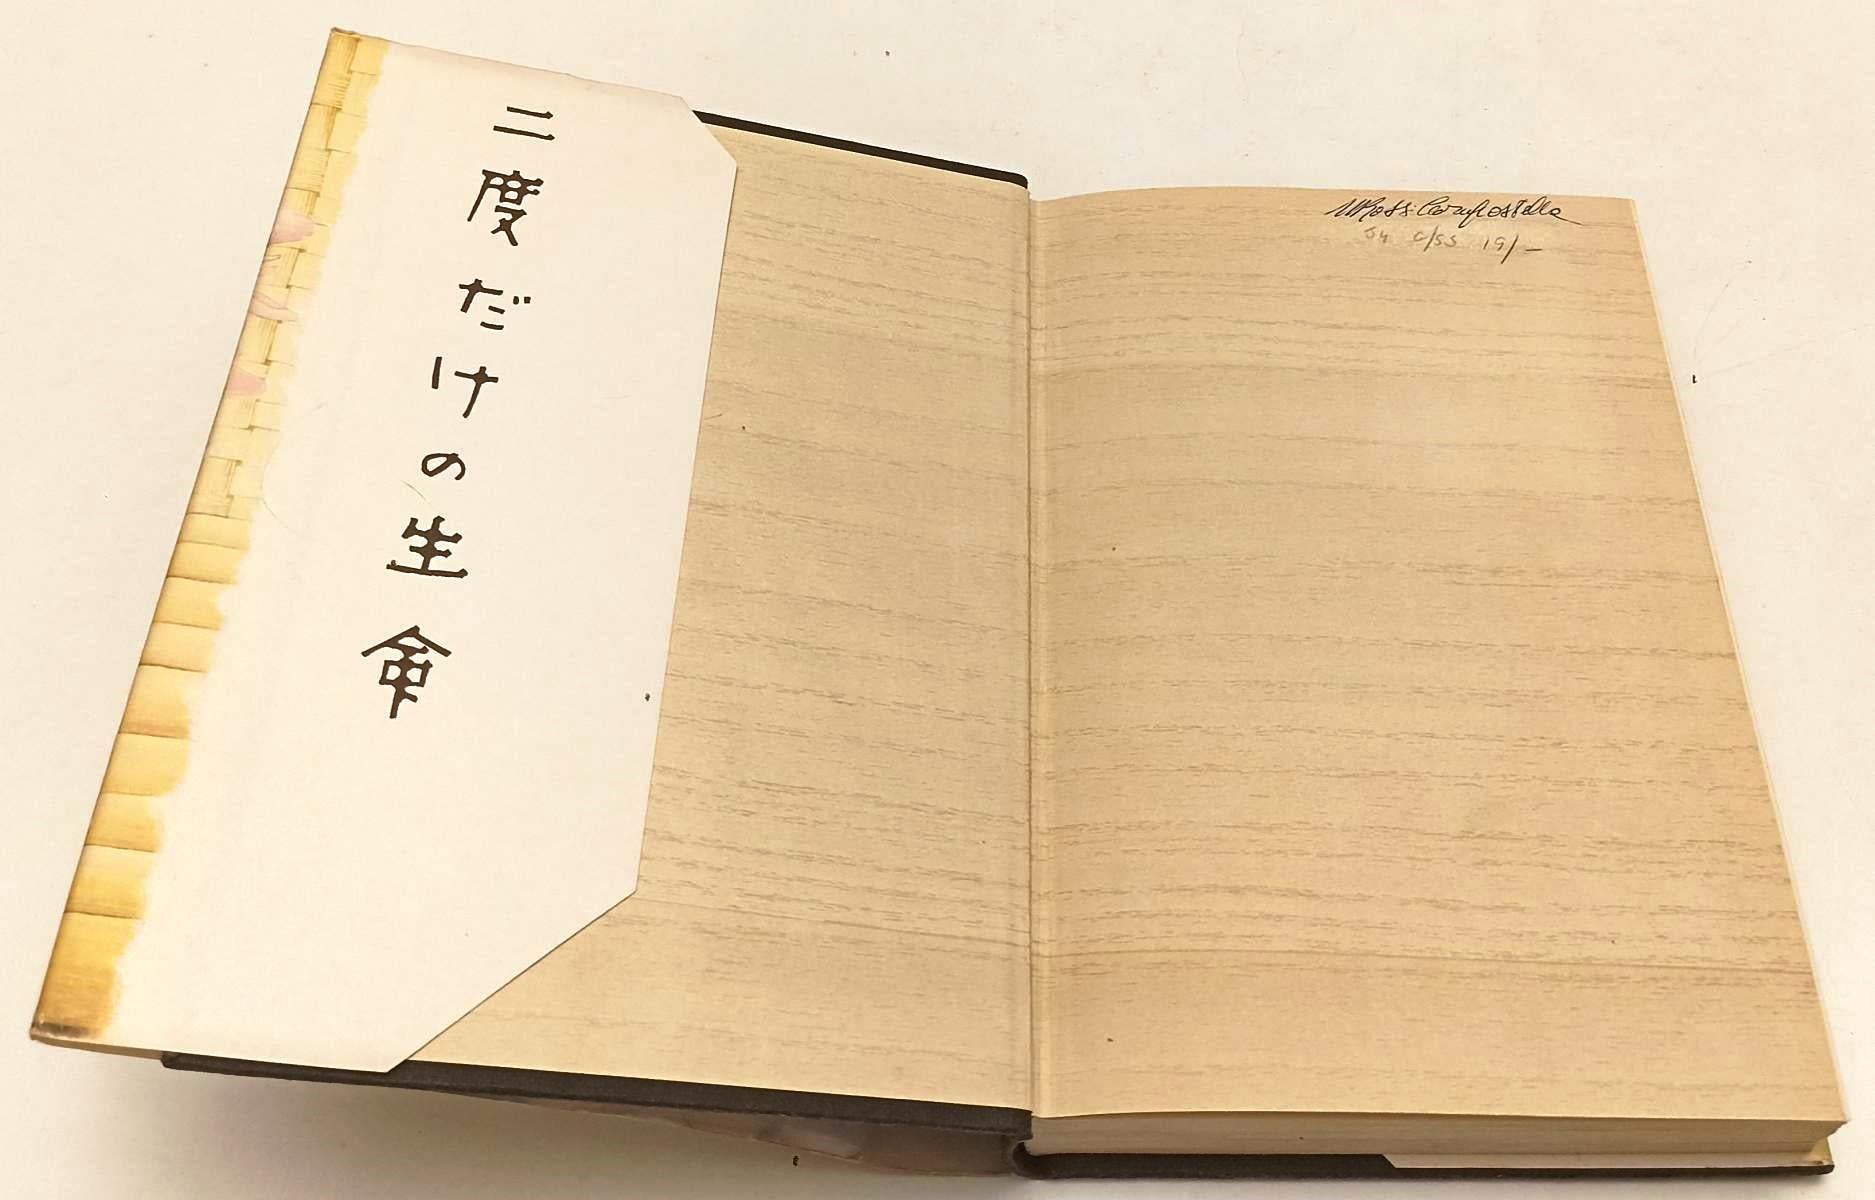 二度だけの生命
Rossi-Compostella
c/ss 19/-